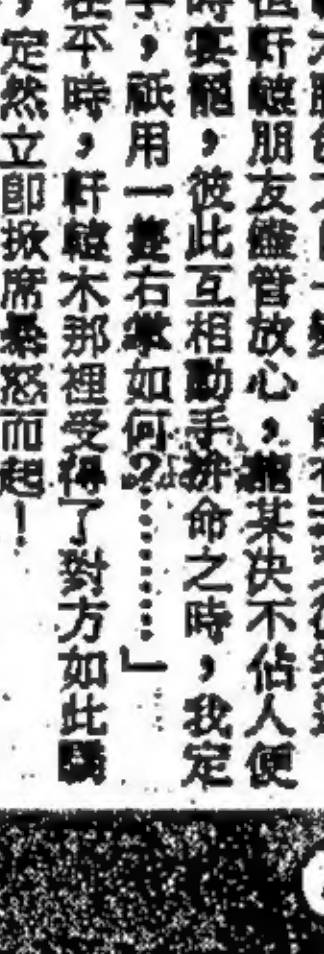 但軒轅朋友儘管放心，龍某決不佔人便
時宴罷，彼此互相動手拚命之時，我定
手，祇用一隻右掌如何？………」
在平時，軒轅木那裡受得了對方如此驕
，定然立即掀席暴怒而起！